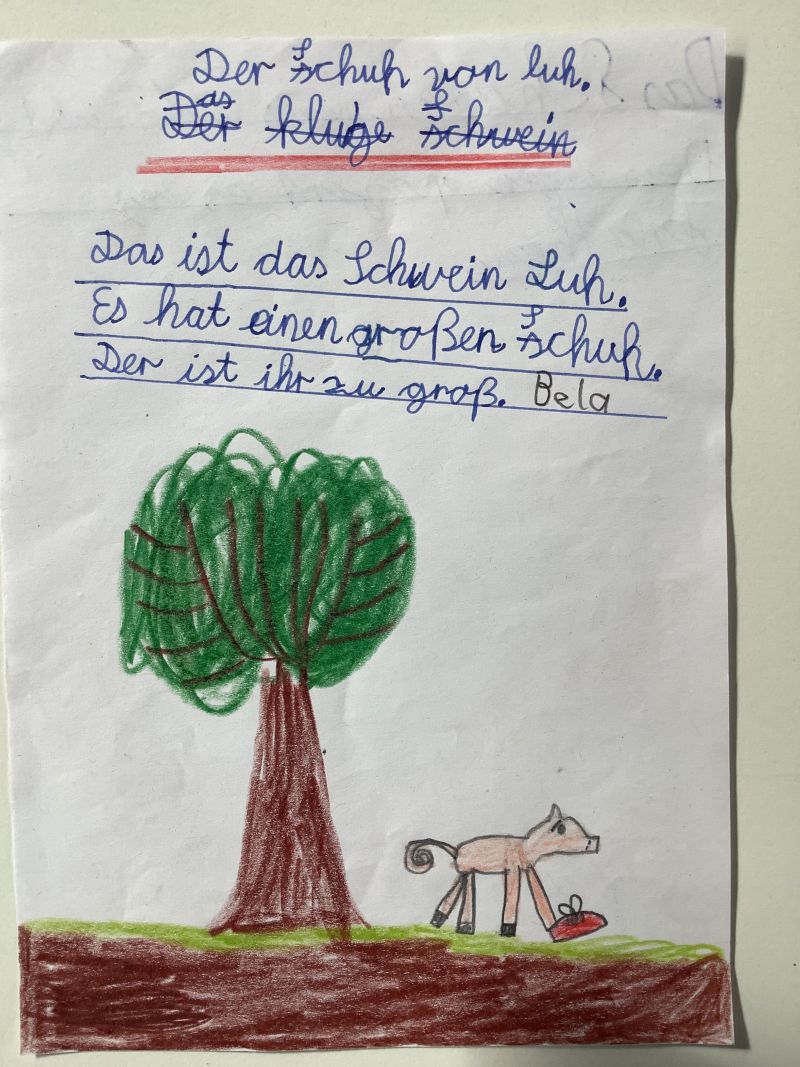 Der Schuh von luh.
Das kluge Schwein
Das ist das Schwein Luh.
Es hat einen großen Schuh.
Der ist ihr zu groß. Bela